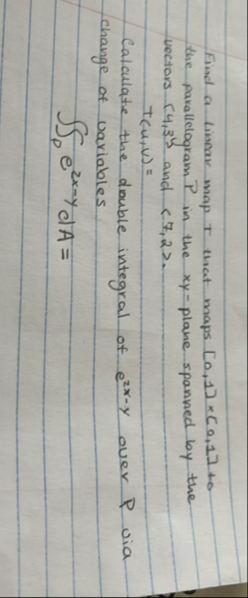 Find a linear map T that maps [0,1]×[0,1] to
the parallelogram P in the xy-plane spanned by the
vectors <4,3> and <7,2>.
T(u,v) =
Calculate the double integral of e^{2x-y} over P via
change of variables
∬_P e^{2x-y} dA =